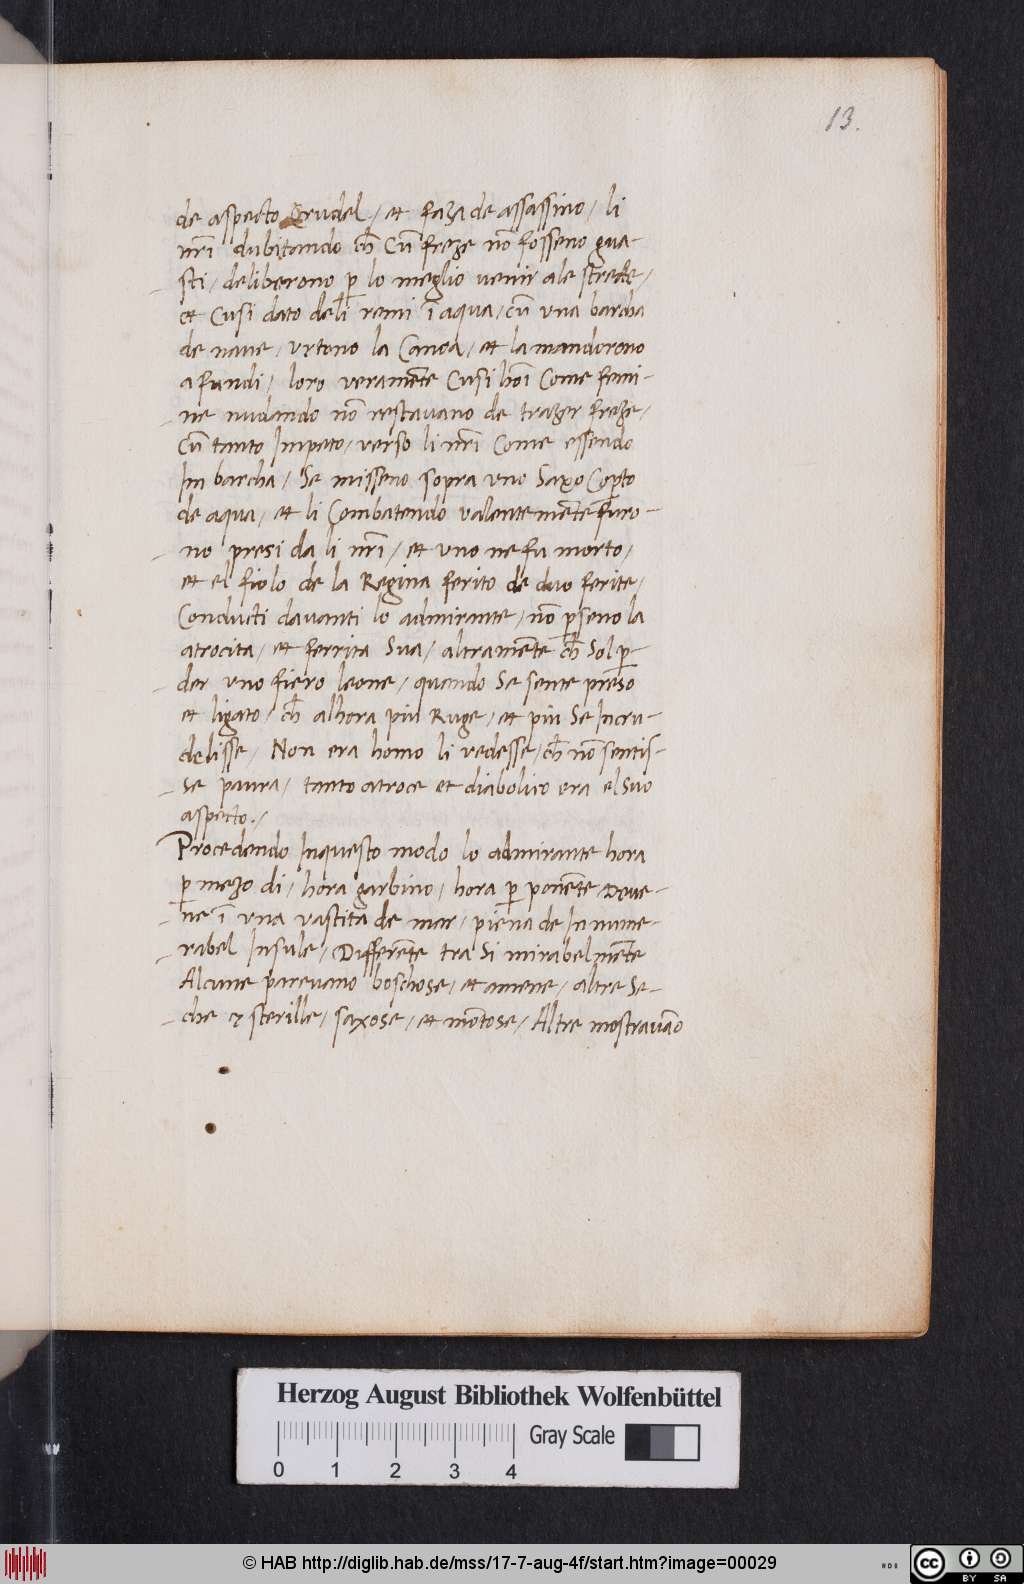 13.
de aspecto Crudel / et faza de assassino / li
nr̃i dubitando ch̃ Cũ freze nõ fosseno gua-
sti / deliberono ꝑ lo meglio venir ale strede /
et Cusi dato deli remi ĩ aqua / cũ vna barcha
de naue / vrtono la Canoa / et la mandorono
a fundi / loro veramẽte Cusi hoĩ Come femi-
ne nudando nõ restauano de trazer freze /
Cũ tanto Impeto / verso li nr̃i Come essendo
In barcha / Se misseno sopra vno Saxo Copto
de aqua / et li Combatendo valentemẽte furo-
no presi da li nr̃i / et vno ne fu morto /
et el fiolo de la Regina ferito de duo ferite /
Conducti davanti lo admirante / nõ ꝑseno la
atrocita / et ferrita Sua / altramẽte ch̃ Sol ꝑ-
der vno fiero leone / quando Se sente preso
et ligato / ch̃ alhora piu Ruge / et piu Se Incru-
delisse / Non era homo li vedesse / ch̃ nõ sentis-
se paura / tanto atroce et diabolico era el Suo
aspecto . /
Procedendo Inquesto modo lo admirante hora
ꝑ mezo di / hora garbino / hora ꝑ ponẽte Deue-
ne ĩ vna vastita de mar / piena de Innume-
rabel Insule / Differẽte tra Si mirabelmẽte
Alcune pareuano boschose / et amene / altre Se-
che & sterille / saxose / et mõtose / Altre mostravão
Herzog August Bibliothek Wolfenbüttel
Gray Scale
0 1 2 3 4
© HAB http://diglib.hab.de/mss/17-7-aug-4f/start.htm?image=00029
cc BY SA